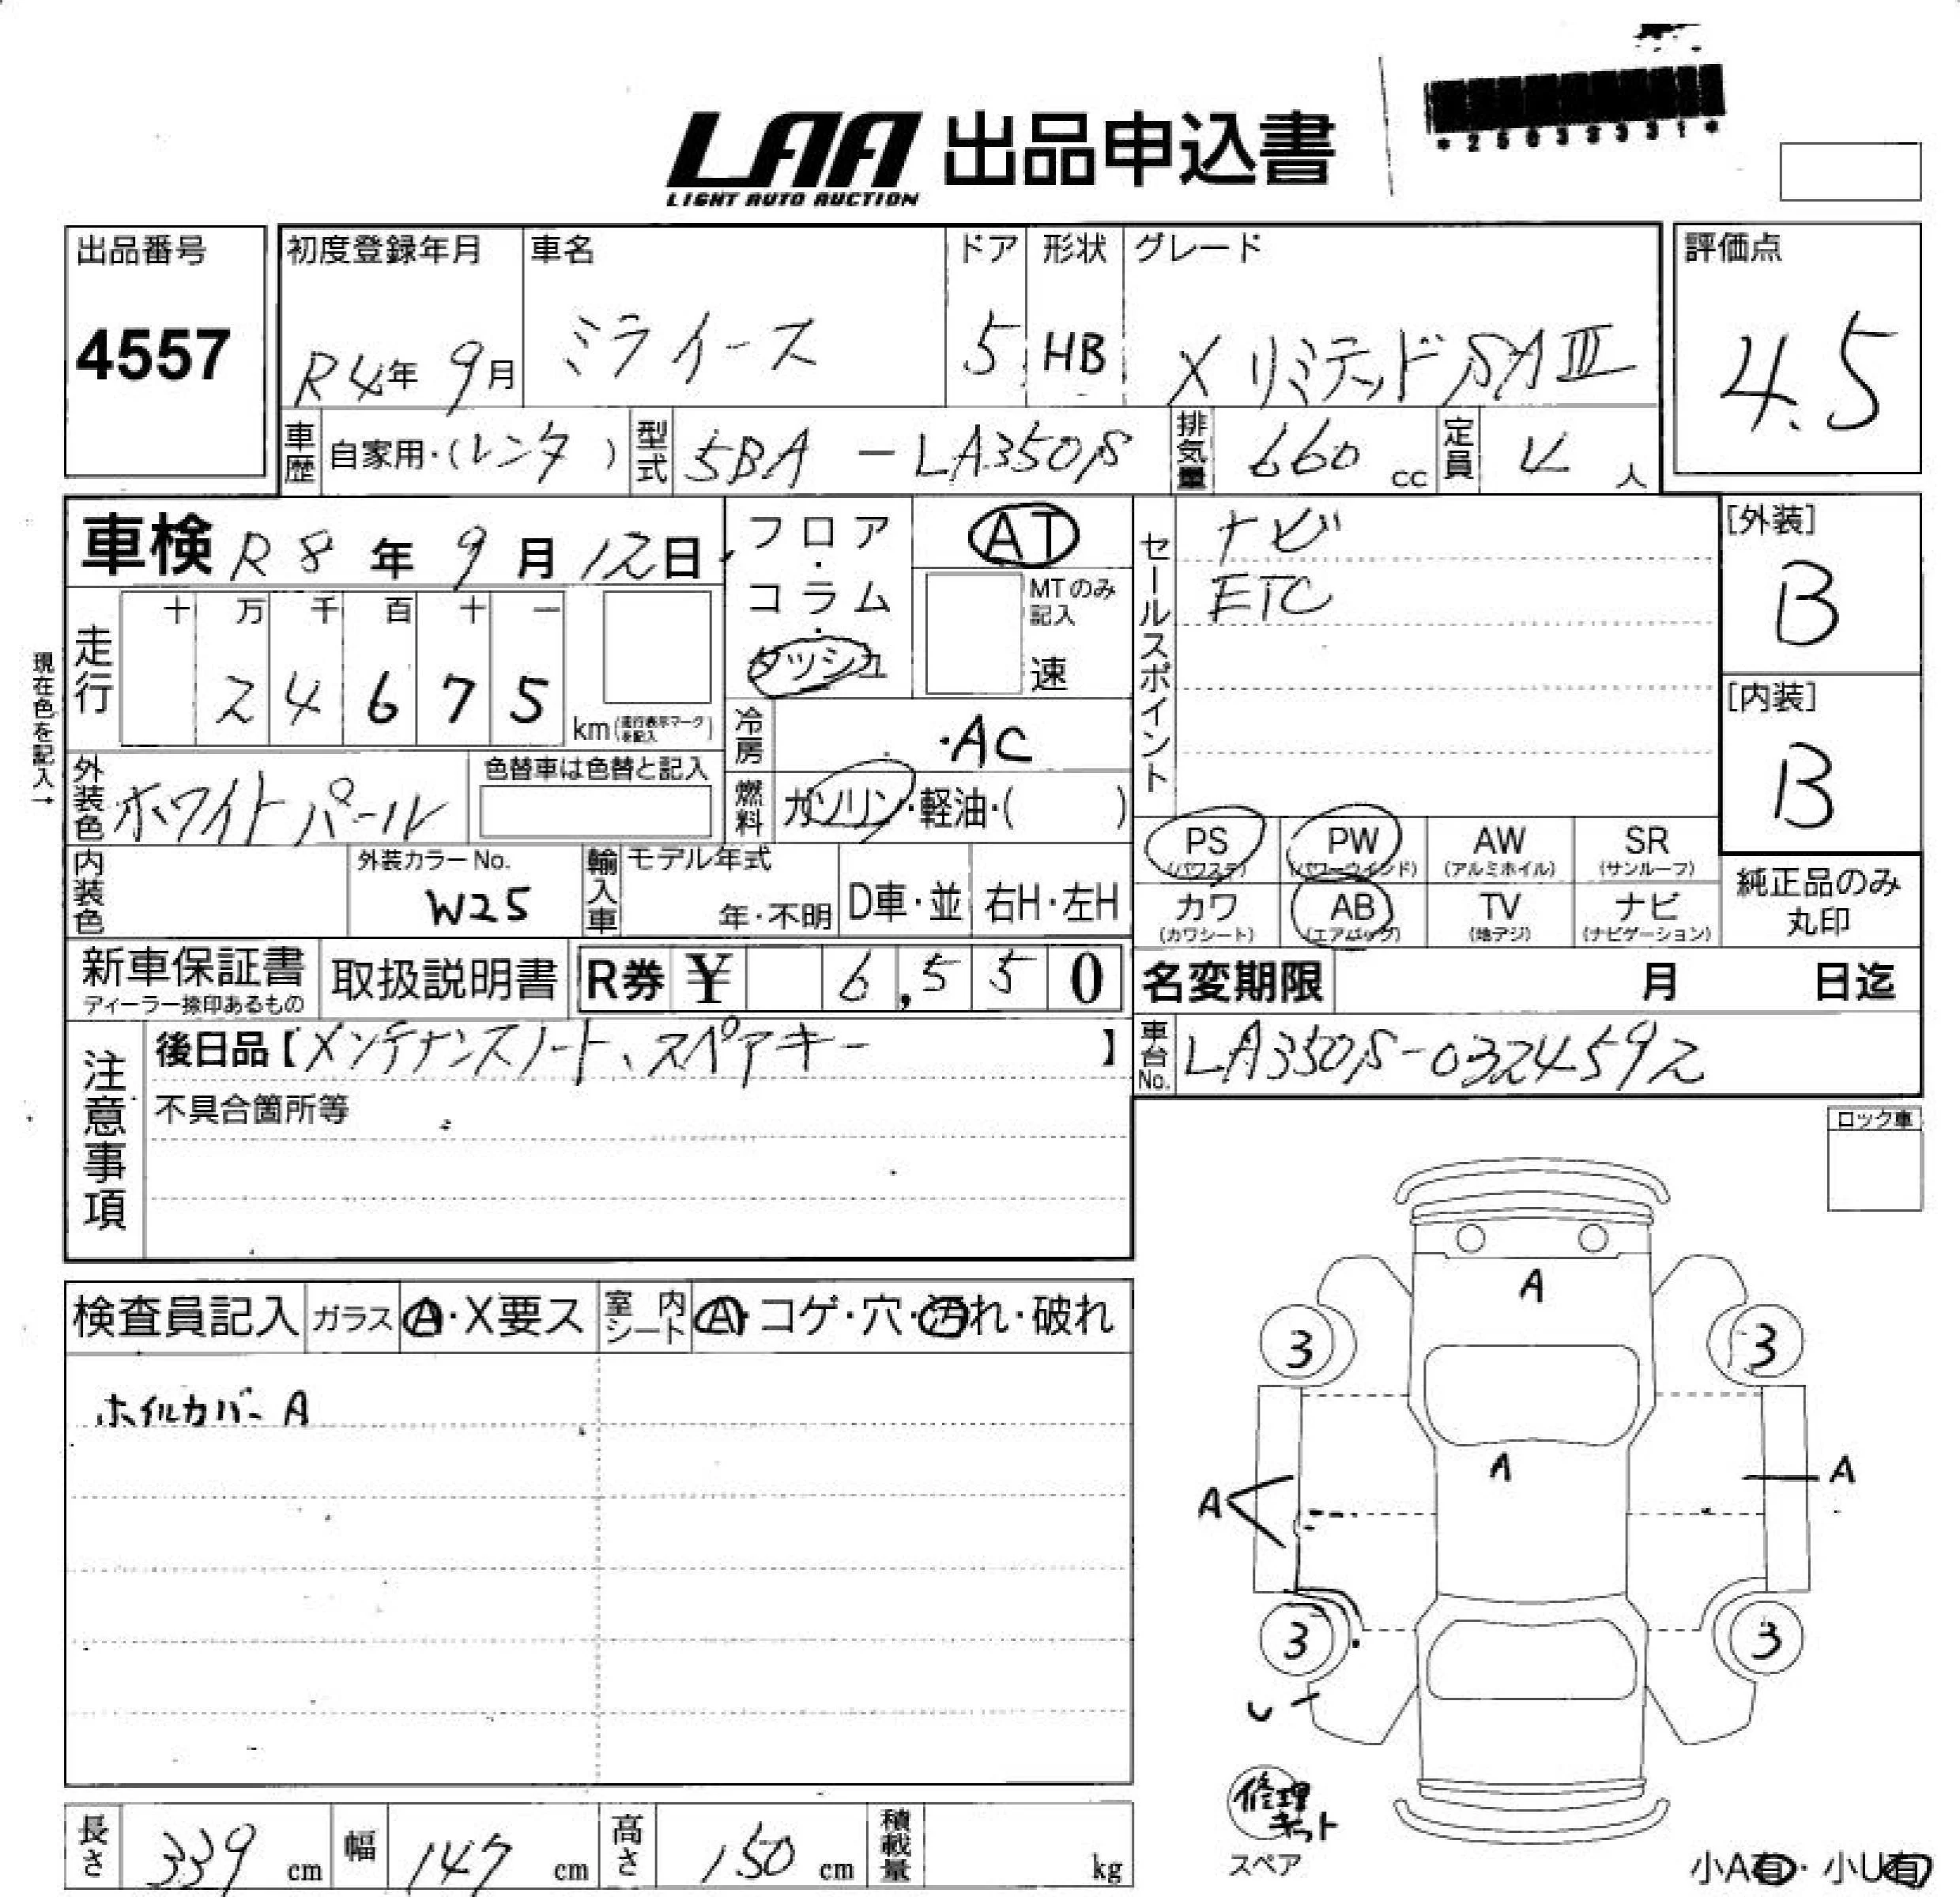 LAA 出品申込書
LIGHT AUTO AUCTION
*2503233
出品番号
4557
初度登録年月
R4年 9月
車名
ミライース
ドア
5
形状
HB
グレード
X リミテッド SAⅢ
評価点
4.5
車歴 自家用・(レンタ)
型式 5BA - LA350S
排気量 660 cc
定員 4 人
車検 R8年 9月 12日
フロア・コラム・ダッシュ
AT
MTのみ記入
速
セールスポイント
ナビ
ETC
[外装]
B
[内装]
B
現在色を記入→
走行
十 万 千 百 十 一
2 4 6 7 5
km (走行表示マークを記入)
冷房 ・AC
外装色 ホワイトパール
色替車は色替と記入
燃料 ガソリン・軽油・( )
PS (パワステ)
PW (パワーウインド)
AW (アルミホイル)
SR (サンルーフ)
カワ (カワシート)
AB (エアバック)
TV (地デジ)
ナビ (ナビゲーション)
純正品のみ
丸印
内装色
外装カラー No.
W25
輸入車
モデル年式
年・不明
D車・並
右H・左H
新車保証書
ディーラー捺印あるもの
取扱説明書
R券 ¥ 6,550
名変期限 月 日迄
注意事項
後日品【メンテナンスノート、スペアキー】
車台No. LA350S-0324592
不具合箇所等
ロック車
検査員記入
ガラス A・X要ス
室内シート A・コゲ・穴・汚れ・破れ
ホイルカバー A
A
3
3
A
A
A
3
3
修理
キット
スペア
長さ 339 cm
幅 147 cm
高さ 150 cm
積載量 kg
小A有・小U有